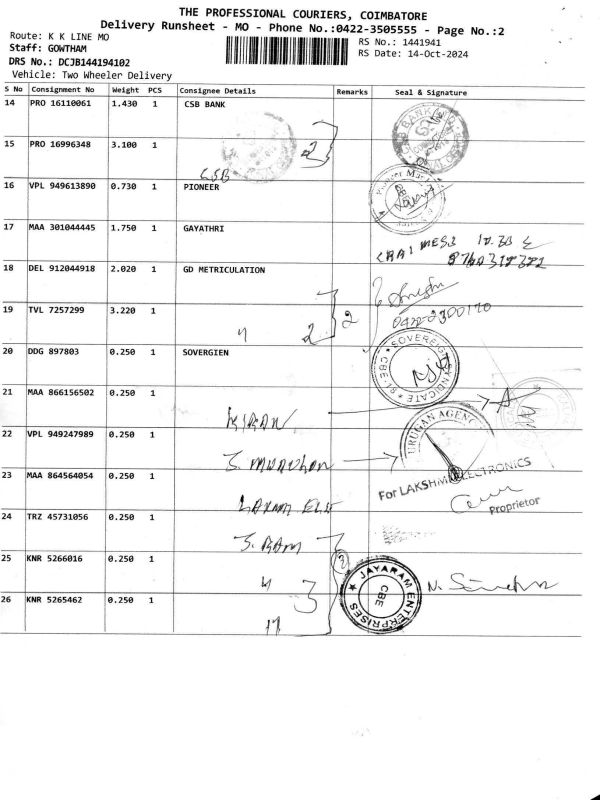 THE PROFESSIONAL COURIERS, COIMBATORE
Delivery Runsheet - MO - Phone No.:0422-3505555 - Page No.:2
Route: K K LINE MO
RS No.: 1441941
Staff: GOWTHAM
RS Date: 14-Oct-2024
DRS No.: DCJB144194102
Vehicle: Two Wheeler Delivery
S No Consignment No Weight PCS Consignee Details Remarks Seal & Signature
14 PRO 16110061 1.430 1 CSB BANK
15 PRO 16996348 3.100 1
2
CSB
16 VPL 949613890 0.730 1 PIONEER
17 MAA 301044445 1.750 1 GAYATHRI
18 DEL 912044918 2.020 1 GD METRICULATION
19 TVL 7257299 3.220 1
2 2
20 DDG 897803 0.250 1 SOVERGIEN
SOVEREIGN SYNDICATE
CBE-18
21 MAA 866156502 0.250 1
KIRAN
22 VPL 949247989 0.250 1
URUGAN AGENC
For LAKSHMI ELECTRONICS
Proprietor
23 MAA 864564054 0.250 1
24 TRZ 45731056 0.250 1
S. RAM
25 KNR 5266016 0.250 1
3
JAYARAM ENTERPRISES
CBE
26 KNR 5265462 0.250 1